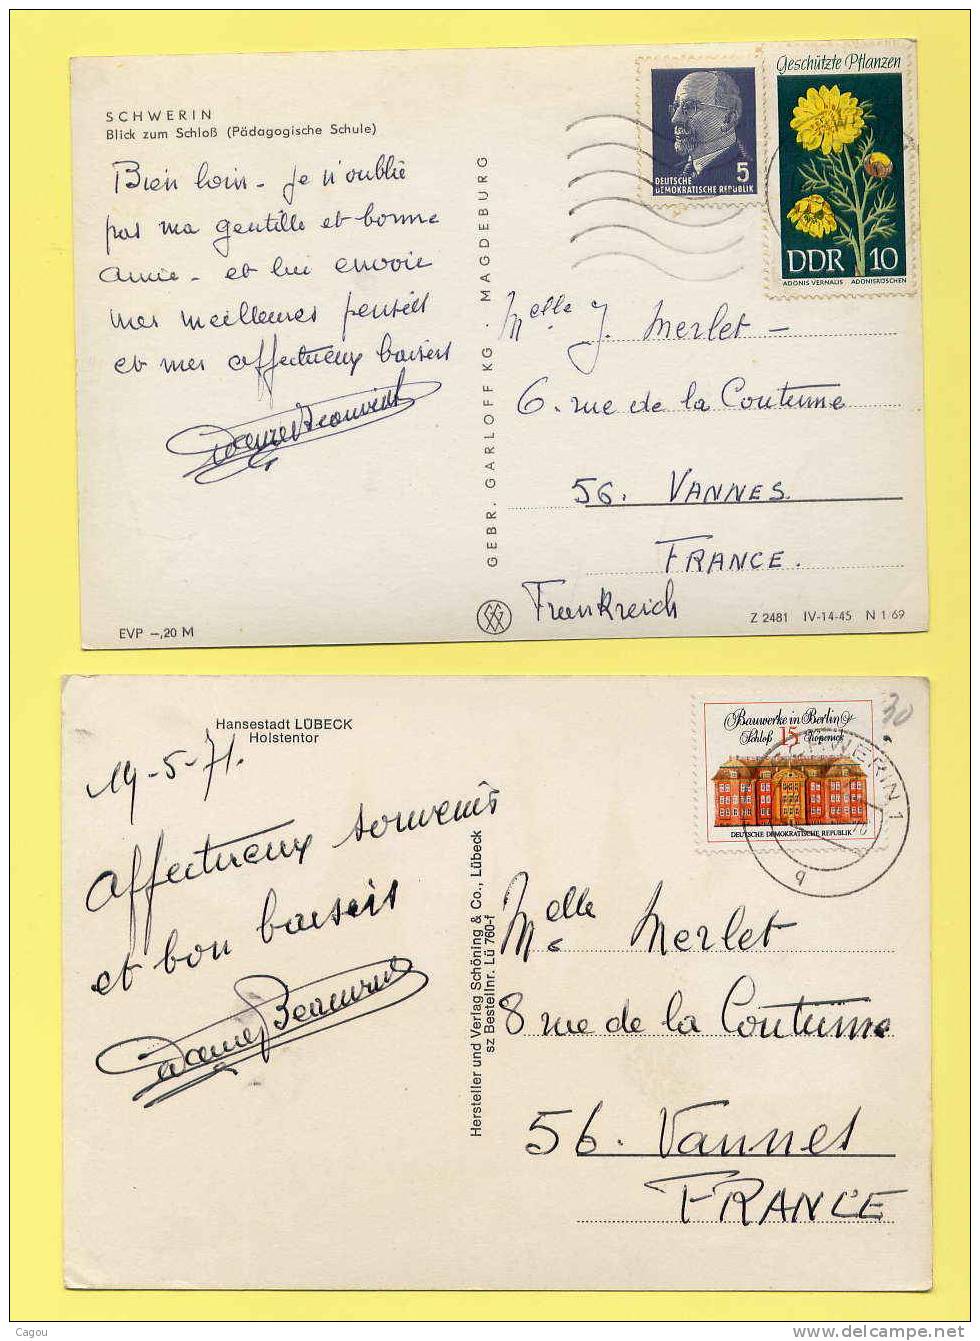 SCHWERIN
Blick zum Schloß (Pädagogische Schule)
Bien loin - je n'oublie
pas ma gentille et bonne
amie - et lui envoie
mes meilleures pensées
et mes affectueux baisers
GEBR. GARLOFF KG. MAGDEBURG
5
DEUTSCHE
DEMOKRATISCHE REPUBLIK
Geschützte Pflanzen
DDR 10
ADONIS VERNALIS ADONISRÖSCHEN
Melle J. Merlet -
6. rue de la Coutume
56. VANNES.
FRANCE.
Frankreich
EVP -,20 M
Z 2481 IV-14-45 N 1 69
Hansestadt LÜBECK
Holstentor
19-5-71.
affectueux souvenirs
et bon baisers
Hersteller und Verlag Schöning & Co., Lübeck
sz Bestellnr. Lü 760-f
30
Bauwerke in Berlin
Schloß 15 Köpenick
DEUTSCHE DEMOKRATISCHE REPUBLIK
SCHWERIN 1
q
Melle Merlet
8 rue de la Coutume
56. Vannes
FRANCE
Cagou
www.delcampe.net